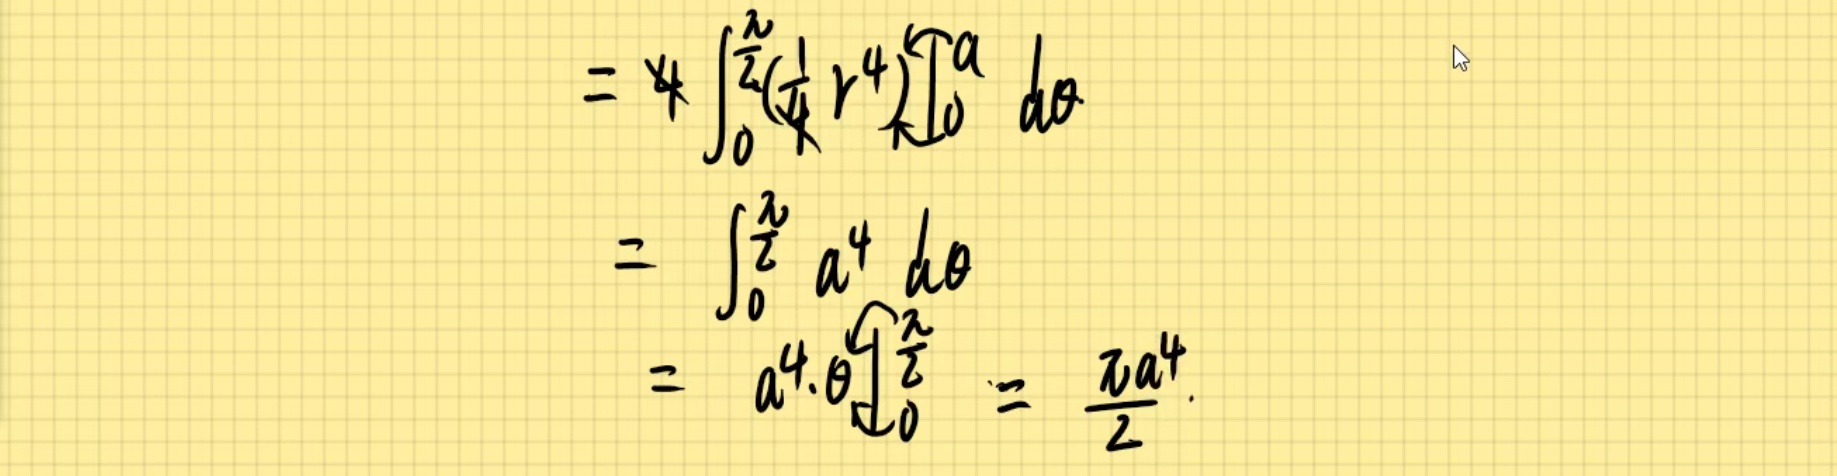 = 4 ∫₀^{π/2} (1/4 r⁴)]₀^a dθ
= ∫₀^{π/2} a⁴ dθ
= a⁴·θ]₀^{π/2} = πa⁴/2.